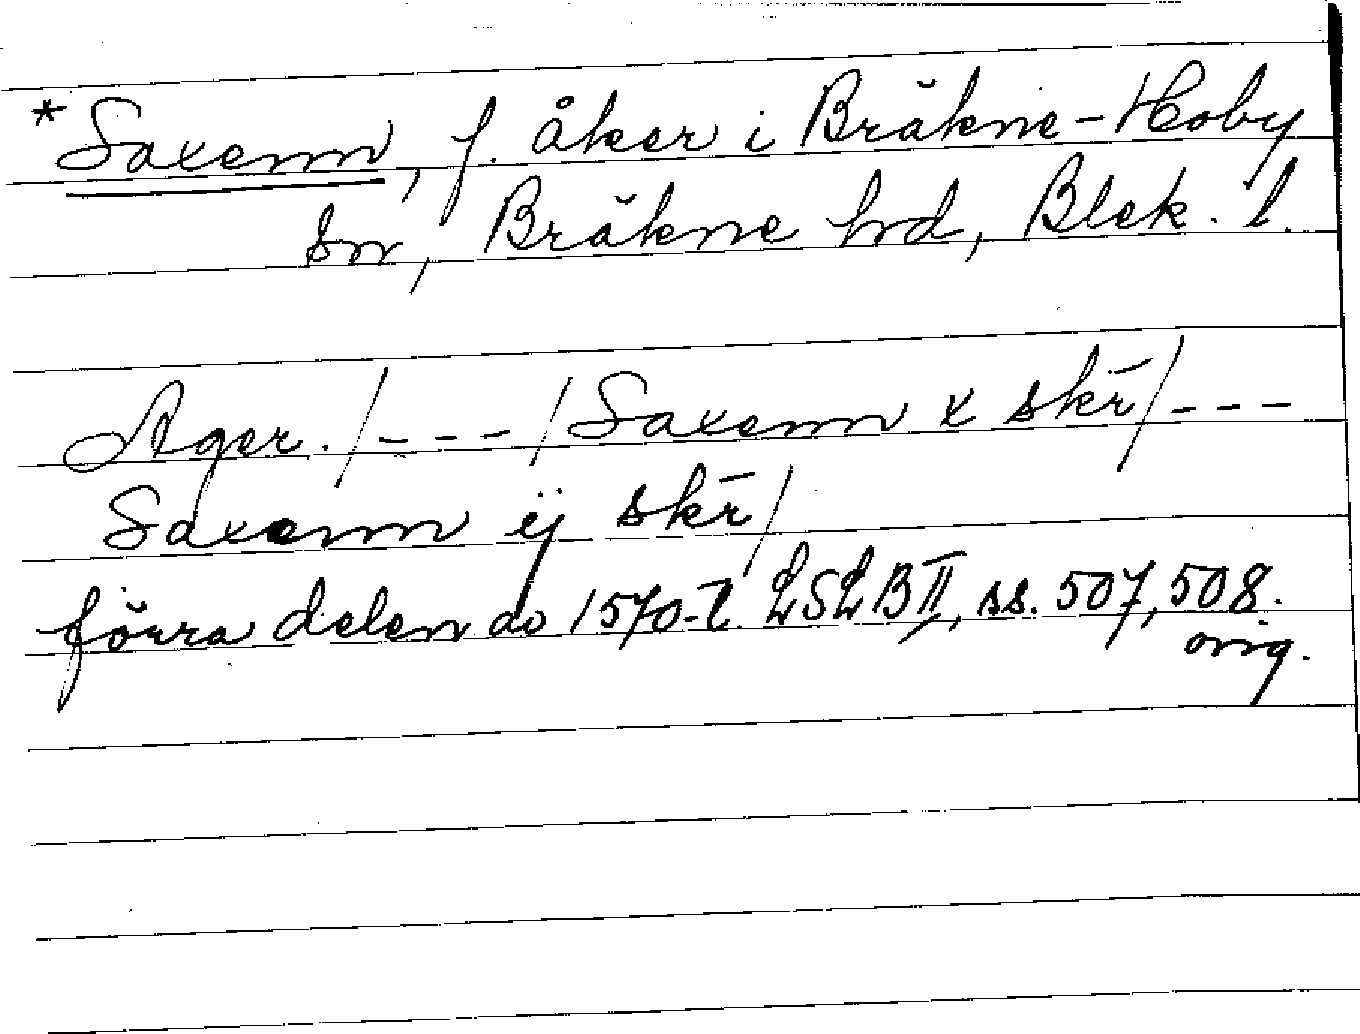 *Saxenn, f. åker i Bräkne-Hoby
sn, Bräkne hd, Blek. l.
Ager. /---/ Saxenn x skr̄/---
Saxenn ij skr̄/
förra delen av 1570-t. LSLB II, ss. 507, 508.
orig.